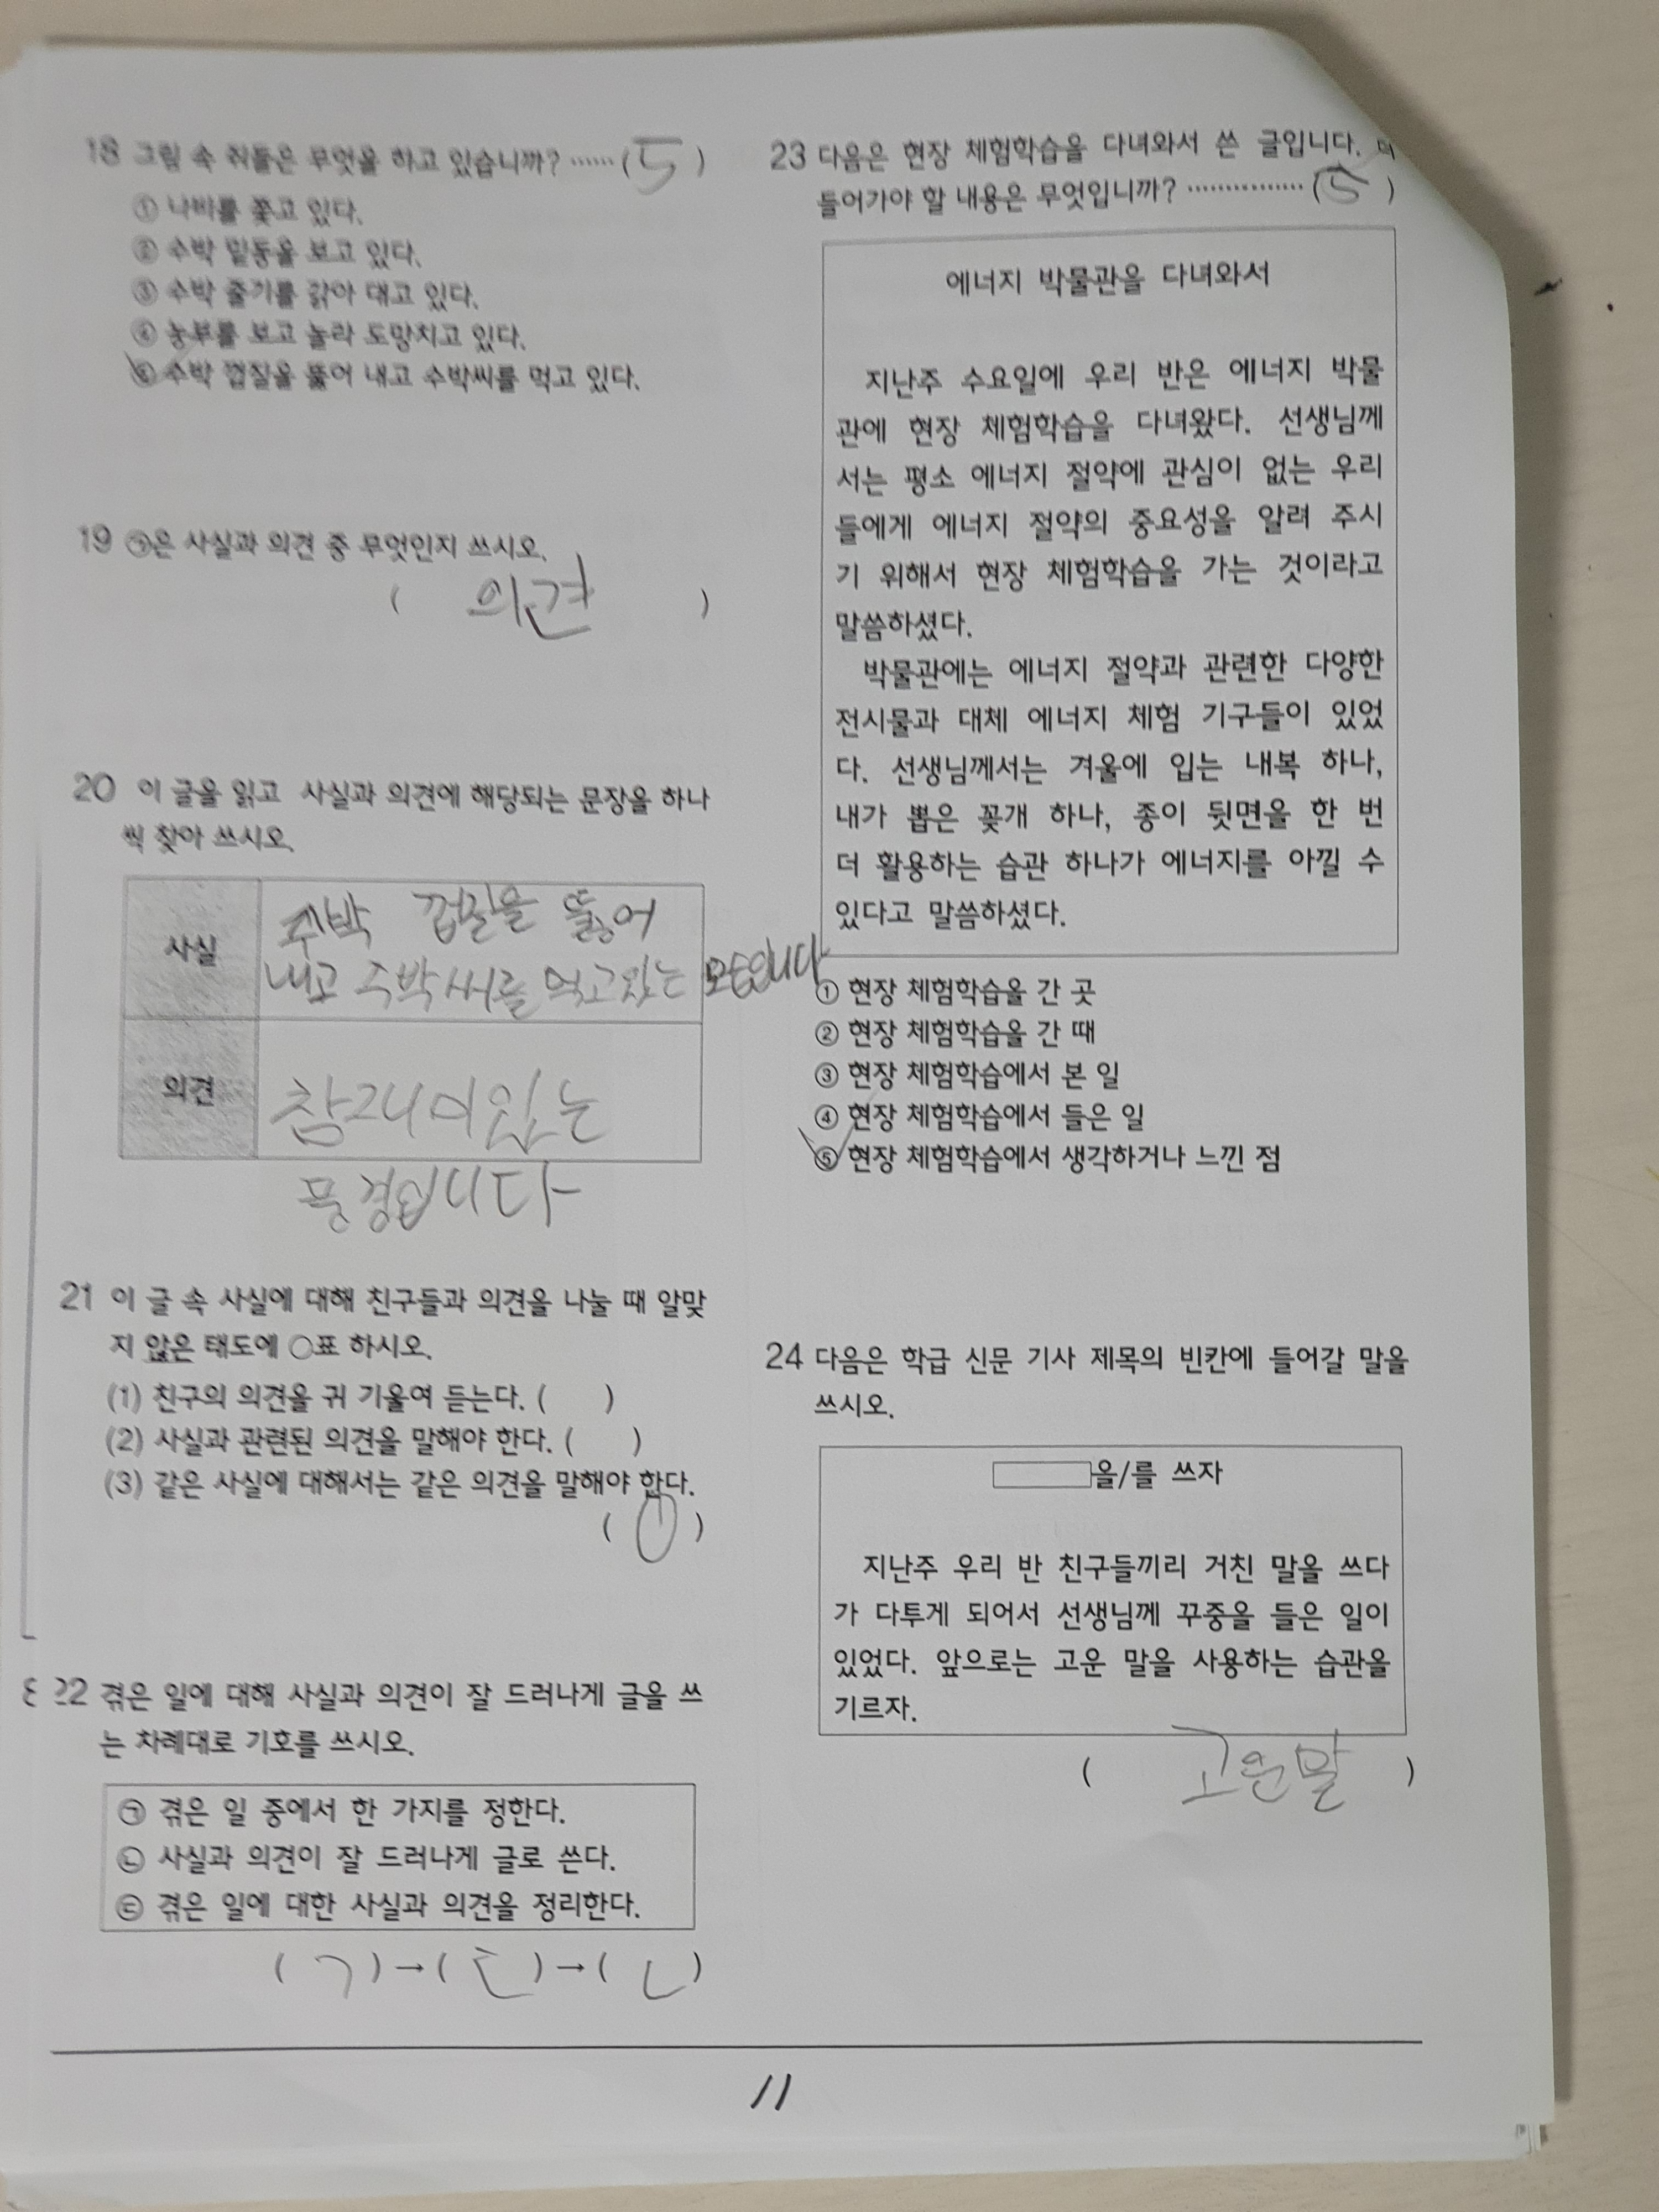 18 그림 속 쥐들은 무엇을 하고 있습니까? ······ ( 5 )
① 나비를 쫓고 있다.
② 수박 밑동을 보고 있다.
③ 수박 줄기를 갉아 대고 있다.
④ 농부를 보고 놀라 도망치고 있다.
⑤ 수박 껍질을 뚫어 내고 수박씨를 먹고 있다.
19 ㉠은 사실과 의견 중 무엇인지 쓰시오.
( 의견 )
20 이 글을 읽고 사실과 의견에 해당되는 문장을 하나
씩 찾아 쓰시오.
사실
수박 껍질을 뚫어
내고 수박씨를 먹고있는 모습입니다
의견
참재미있는
풍경입니다
21 이 글 속 사실에 대해 친구들과 의견을 나눌 때 알맞
지 않은 태도에 ○표 하시오.
(1) 친구의 의견을 귀 기울여 듣는다. ( )
(2) 사실과 관련된 의견을 말해야 한다. ( )
(3) 같은 사실에 대해서는 같은 의견을 말해야 한다.
( ○ )
22 겪은 일에 대해 사실과 의견이 잘 드러나게 글을 쓰
는 차례대로 기호를 쓰시오.
㉠ 겪은 일 중에서 한 가지를 정한다.
㉡ 사실과 의견이 잘 드러나게 글로 쓴다.
㉢ 겪은 일에 대한 사실과 의견을 정리한다.
( ㄱ ) → ( ㄷ ) → ( ㄴ )
23 다음은 현장 체험학습을 다녀와서 쓴 글입니다. 더
들어가야 할 내용은 무엇입니까? ················ ( 5 )
에너지 박물관을 다녀와서
지난주 수요일에 우리 반은 에너지 박물
관에 현장 체험학습을 다녀왔다. 선생님께
서는 평소 에너지 절약에 관심이 없는 우리
들에게 에너지 절약의 중요성을 알려 주시
기 위해서 현장 체험학습을 가는 것이라고
말씀하셨다.
박물관에는 에너지 절약과 관련한 다양한
전시물과 대체 에너지 체험 기구들이 있었
다. 선생님께서는 겨울에 입는 내복 하나,
내가 뽑은 꽂개 하나, 종이 뒷면을 한 번
더 활용하는 습관 하나가 에너지를 아낄 수
있다고 말씀하셨다.
① 현장 체험학습을 간 곳
② 현장 체험학습을 간 때
③ 현장 체험학습에서 본 일
④ 현장 체험학습에서 들은 일
⑤ 현장 체험학습에서 생각하거나 느낀 점
24 다음은 학급 신문 기사 제목의 빈칸에 들어갈 말을
쓰시오.
을/를 쓰자
지난주 우리 반 친구들끼리 거친 말을 쓰다
가 다투게 되어서 선생님께 꾸중을 들은 일이
있었다. 앞으로는 고운 말을 사용하는 습관을
기르자.
( 고운말 )
11